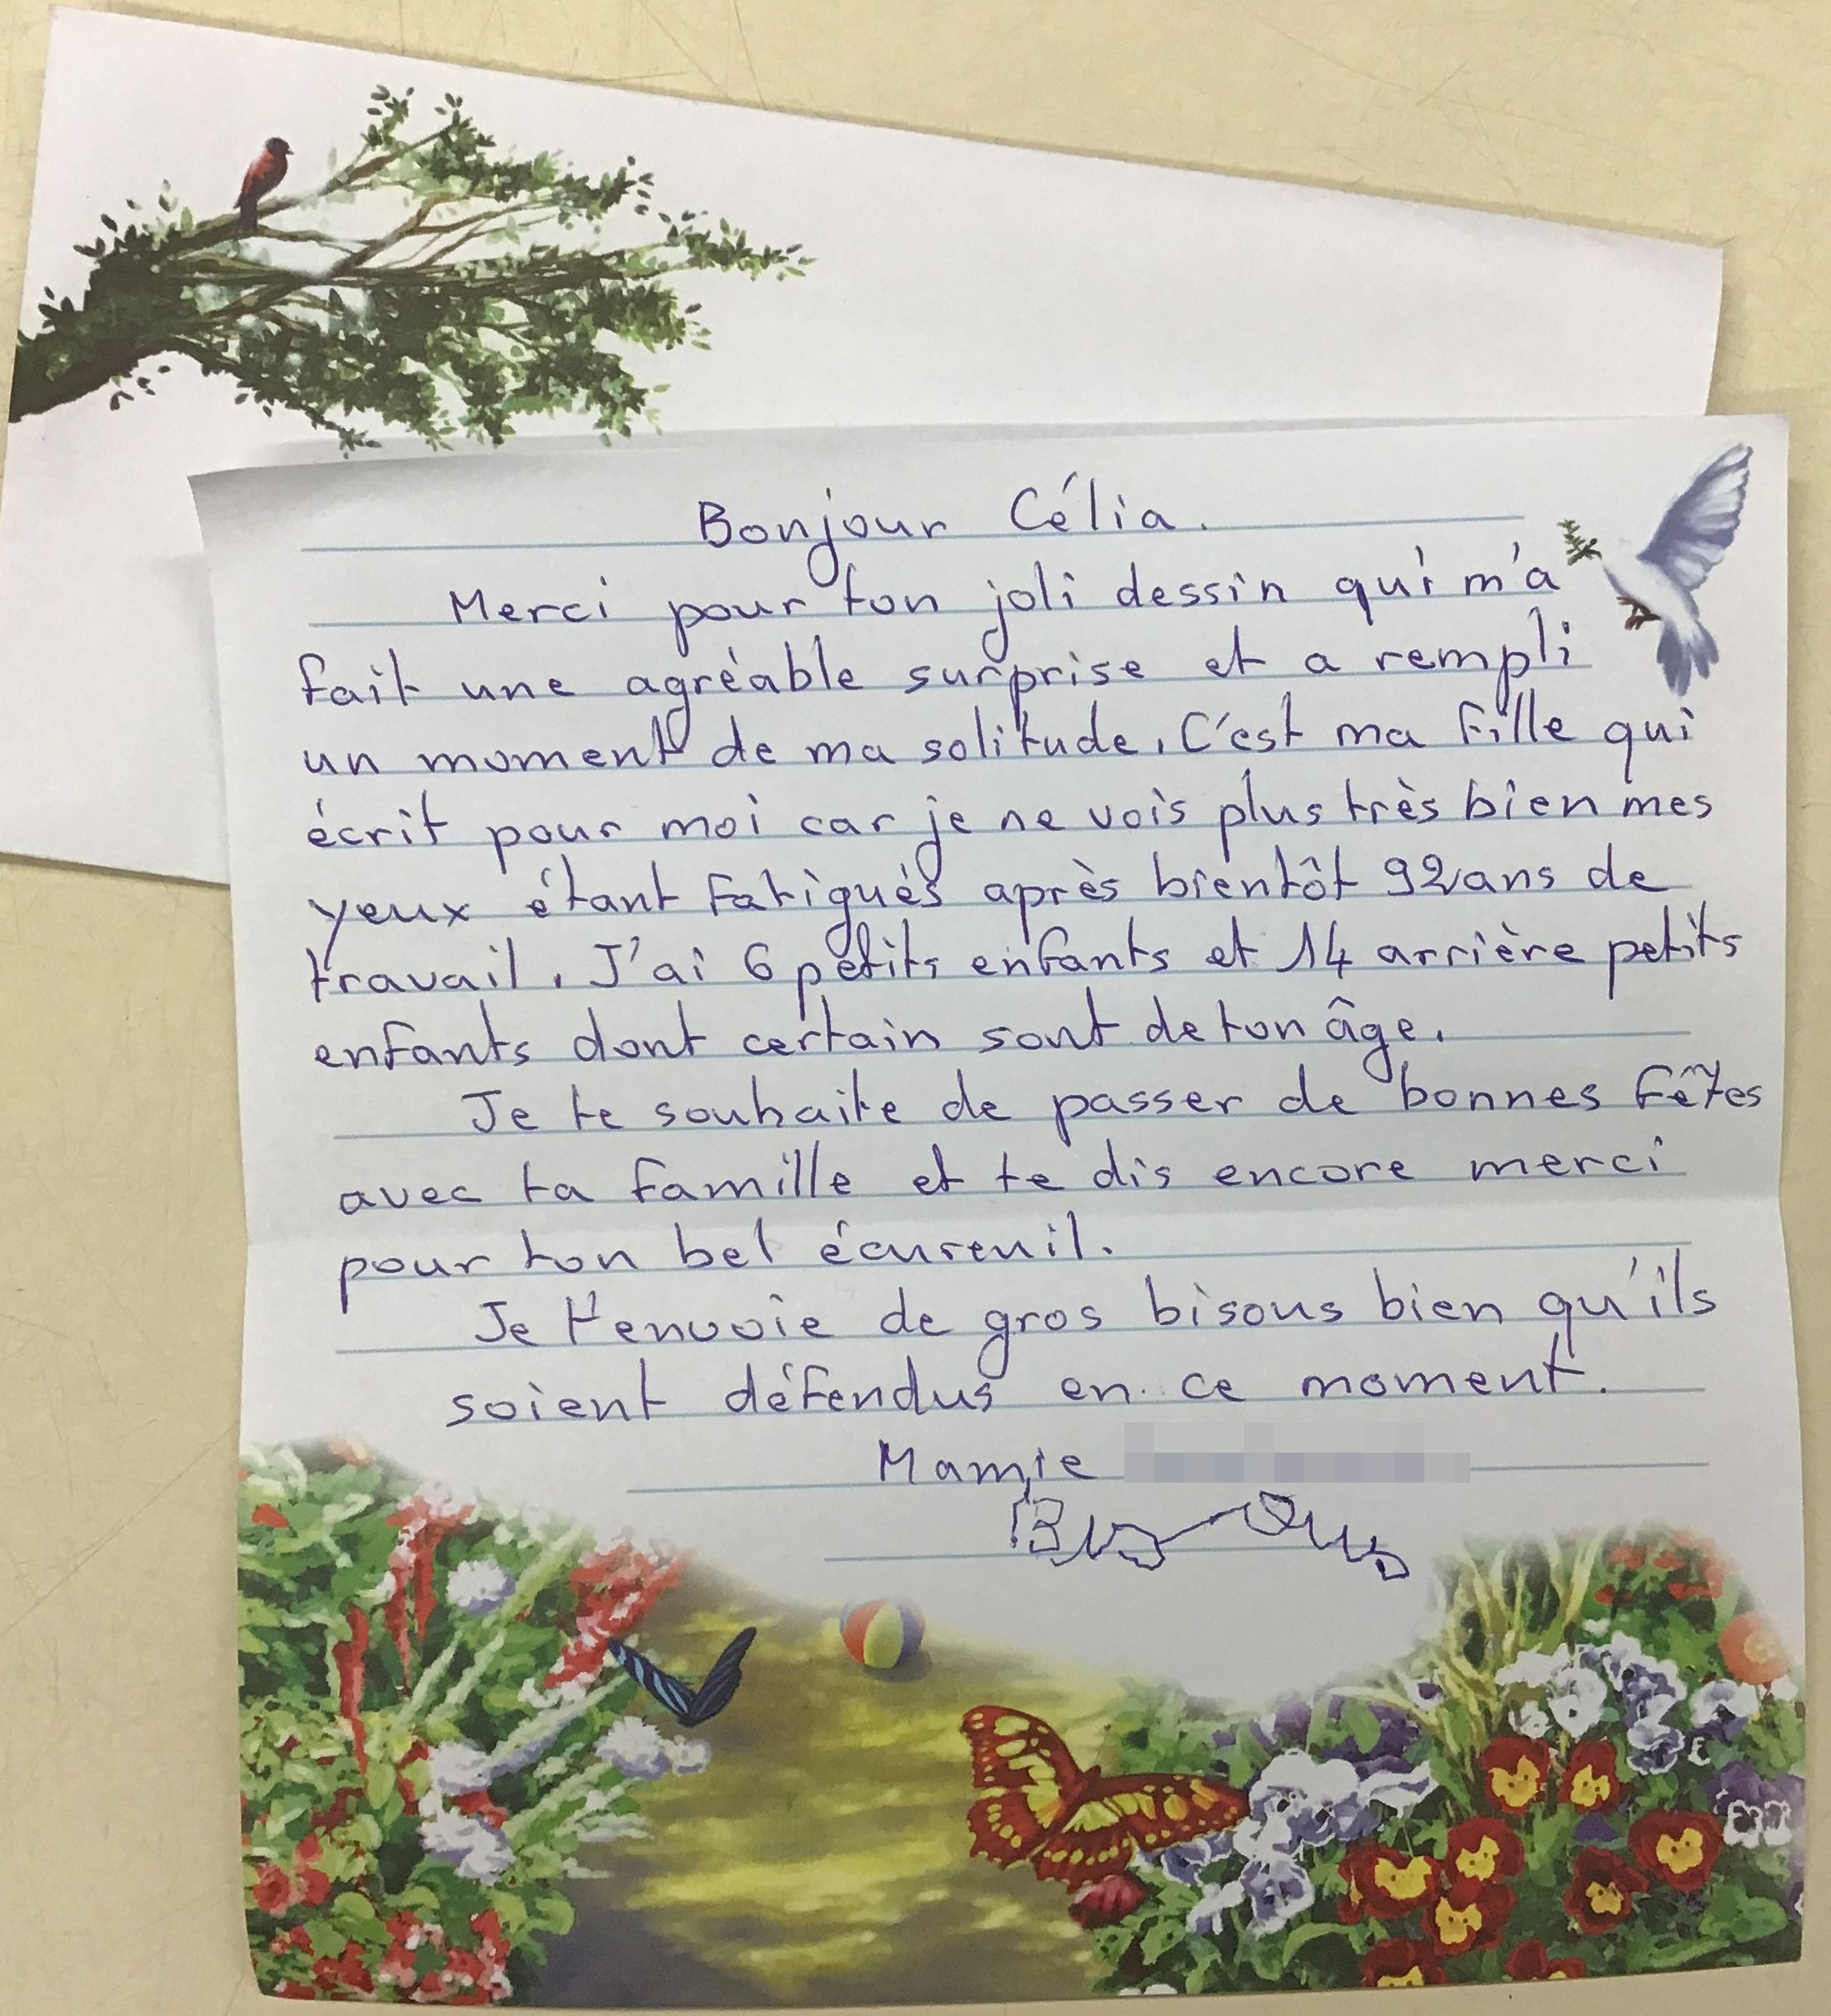 Bonjour Célia.
Merci pour ton joli dessin qui m'a
fait une agréable surprise et a rempli
un moment de ma solitude. C'est ma fille qui
écrit pour moi car je ne vois plus très bien mes
yeux étant fatigués après bientôt 92 ans de
travail. J'ai 6 petits enfants et 14 arrière petits
enfants dont certain sont de ton âge.
Je te souhaite de passer de bonnes fêtes
avec ta famille et te dis encore merci
pour ton bel écureuil.
Je t'envoie de gros bisous bien qu'ils
soient défendus en ce moment.
Mamie